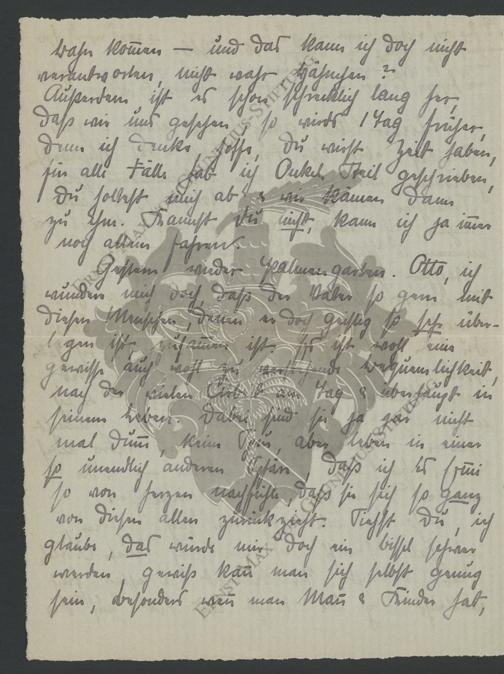 kommen — und das kann ich doch nicht
verantworten, nicht wahr ?
Außerdem ist es schon schrecklich lang her,
daß wir uns gesehen, so wirds 1 Tag früher,
denn ich denke, hoffe, Du wirst Zeit haben,
für alle Fälle hab ich Onkel geschrieben,
Du holst mich ab & wir kämen dann
zu ihm. Kannst Du nicht, kann ich ja immer
noch allein fahren.
Gestern wieder Palmengarten. Otto, ich
wundere mich doch, daß der Vater so gern mit
diesen Menschen, denen er doch geistig so sehr über-
legen ist zusammen ist. Es ist wohl eine
gewisse auch wohl zu verstehende Bequemlichkeit
nach der vielen Arbeit am Tag & überhaupt in
seinem Leben. Dabei sind sie ja gar nicht
mal dumm, kein aber leben in einer
so unendlich anderen Sphäre, daß ich es
so von Herzen nachfühle, daß sie sich so ganz
von diesen allen zurückzieht. Siehst Du, ich
glaube, das würde mir doch ein bissel schwer
werden, gewiß kann man sich selbst genug
sein, besonders wenn man Mann & Kinder hat,
ERNST MAX VON GRUNELIUS-STIFTUNG
ERNST MAX VON GRUNELIUS-STIFTUNG